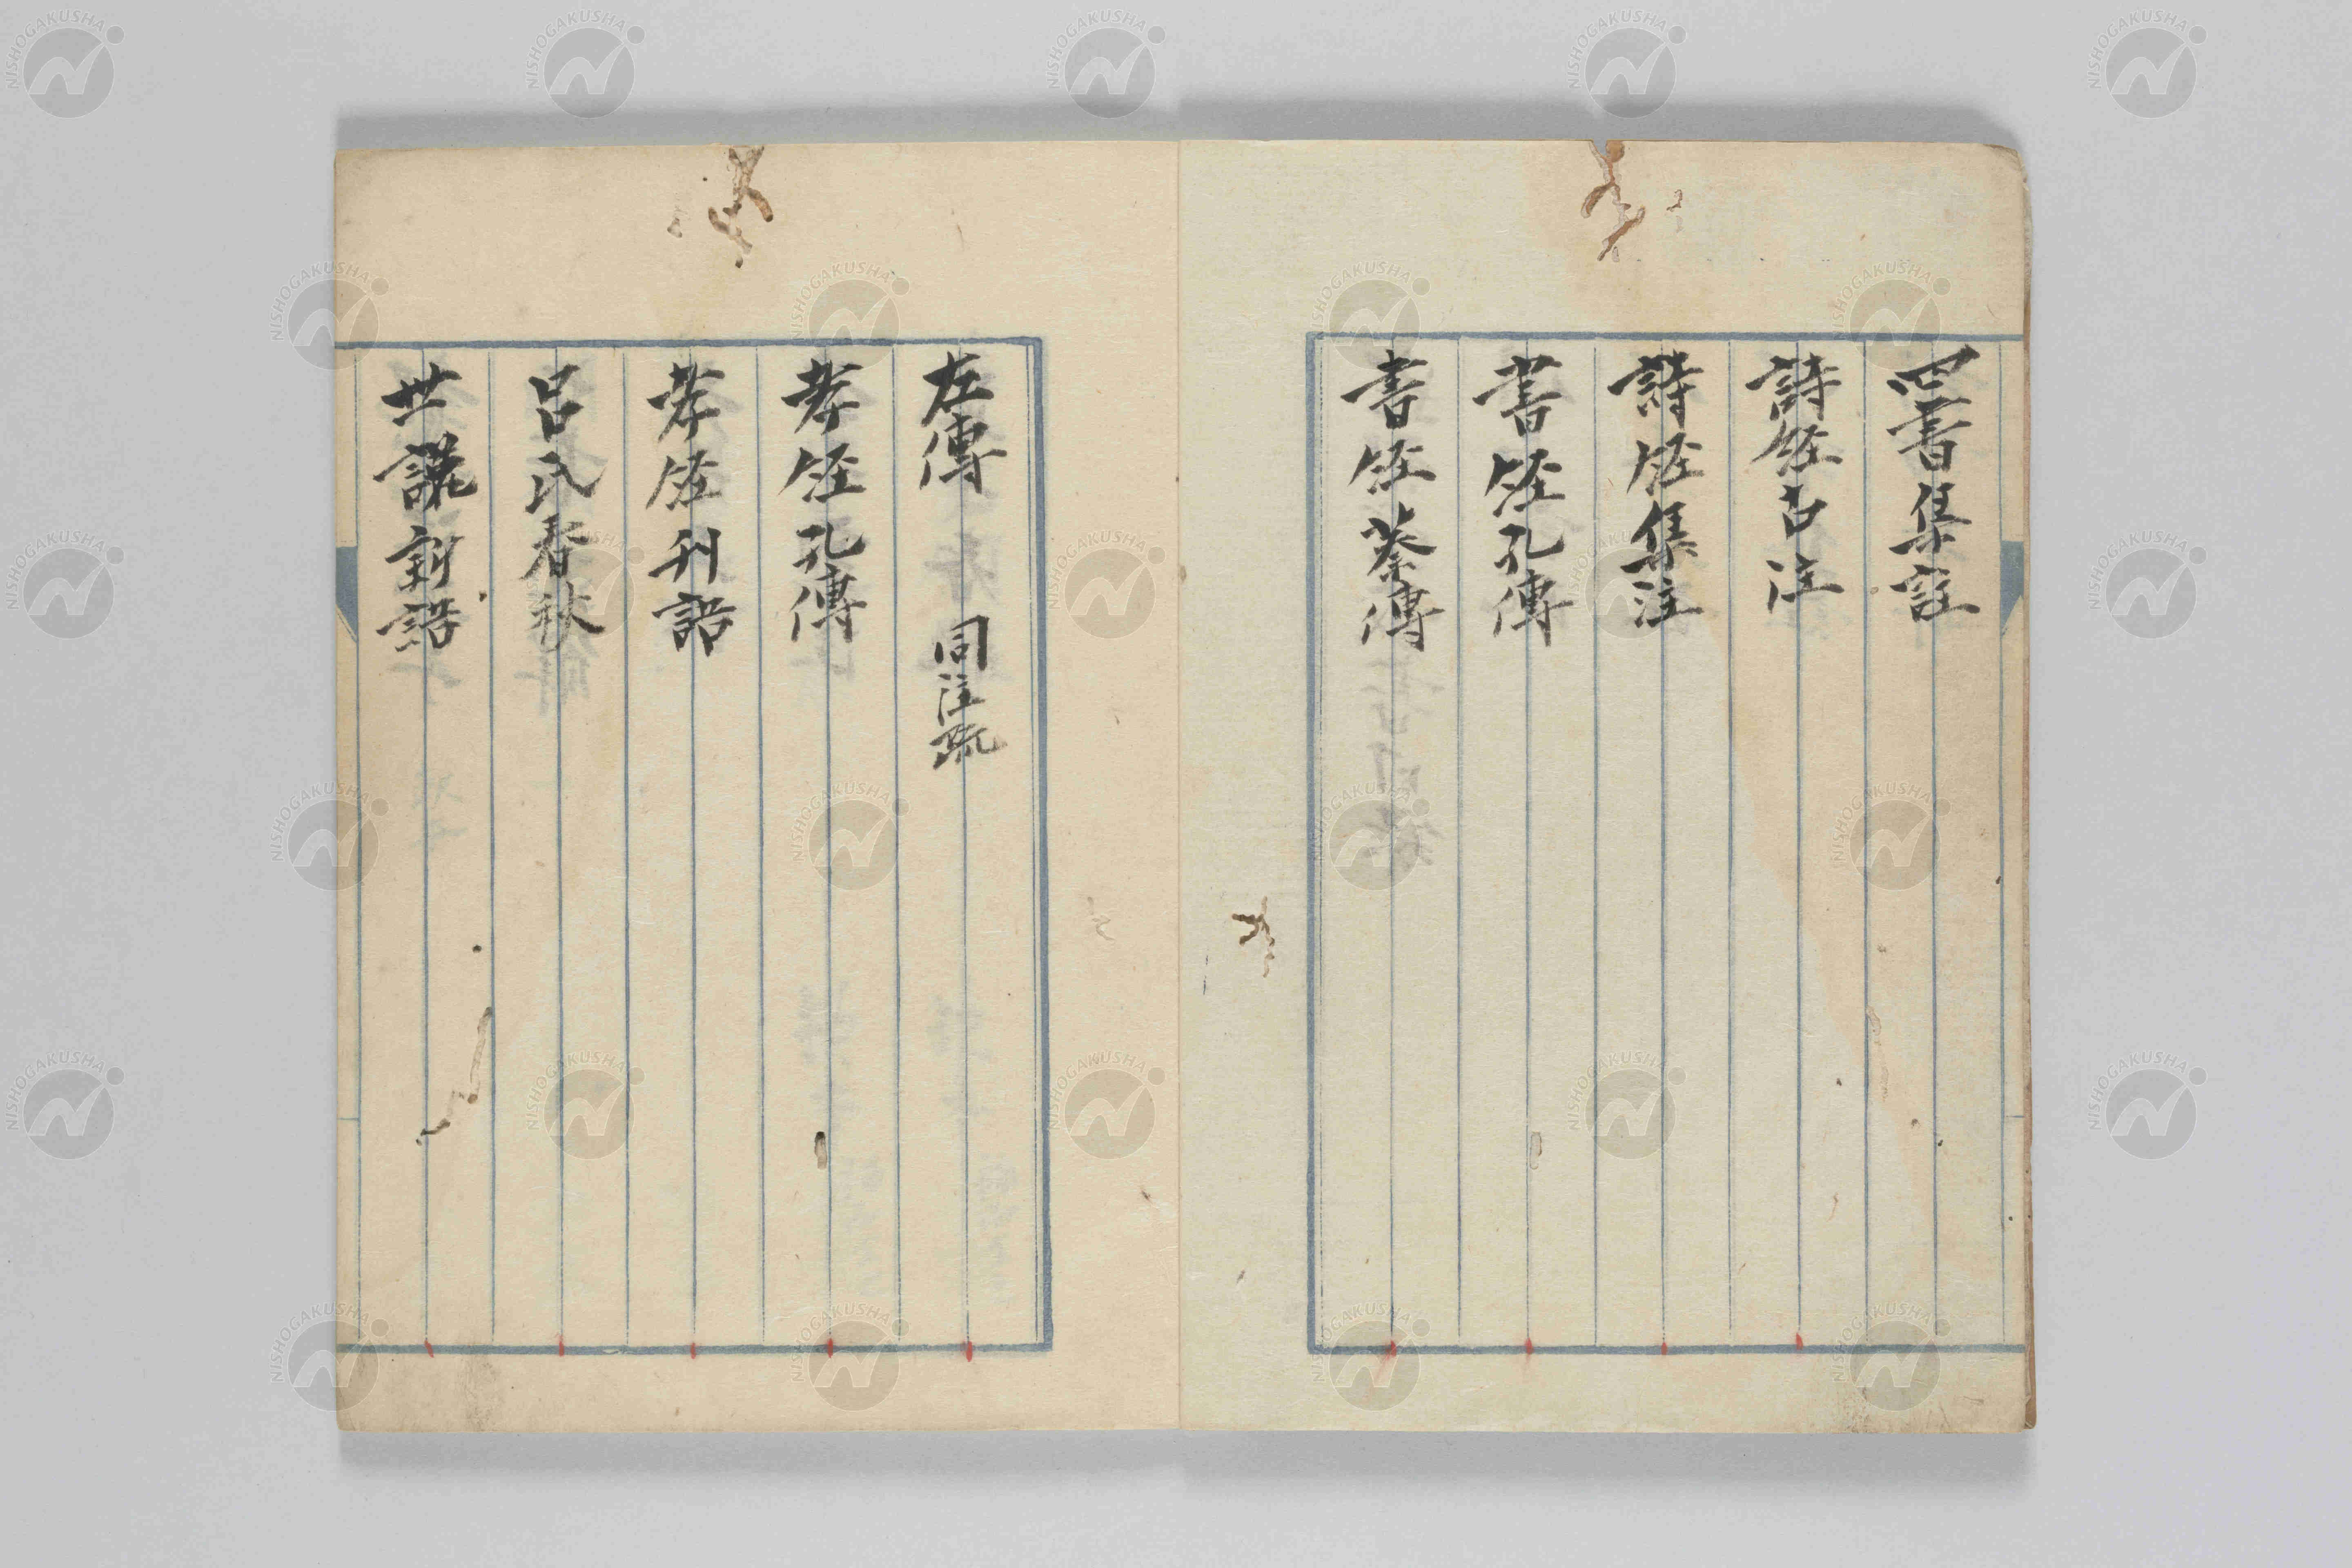 四書集註
詩経古注
詩経集注
書経孔傳
書経蔡傳
左傳 同注疏
孝経孔傳
孝経刊誤
呂氏春秋
世説新語
NISHOGAKUSHA